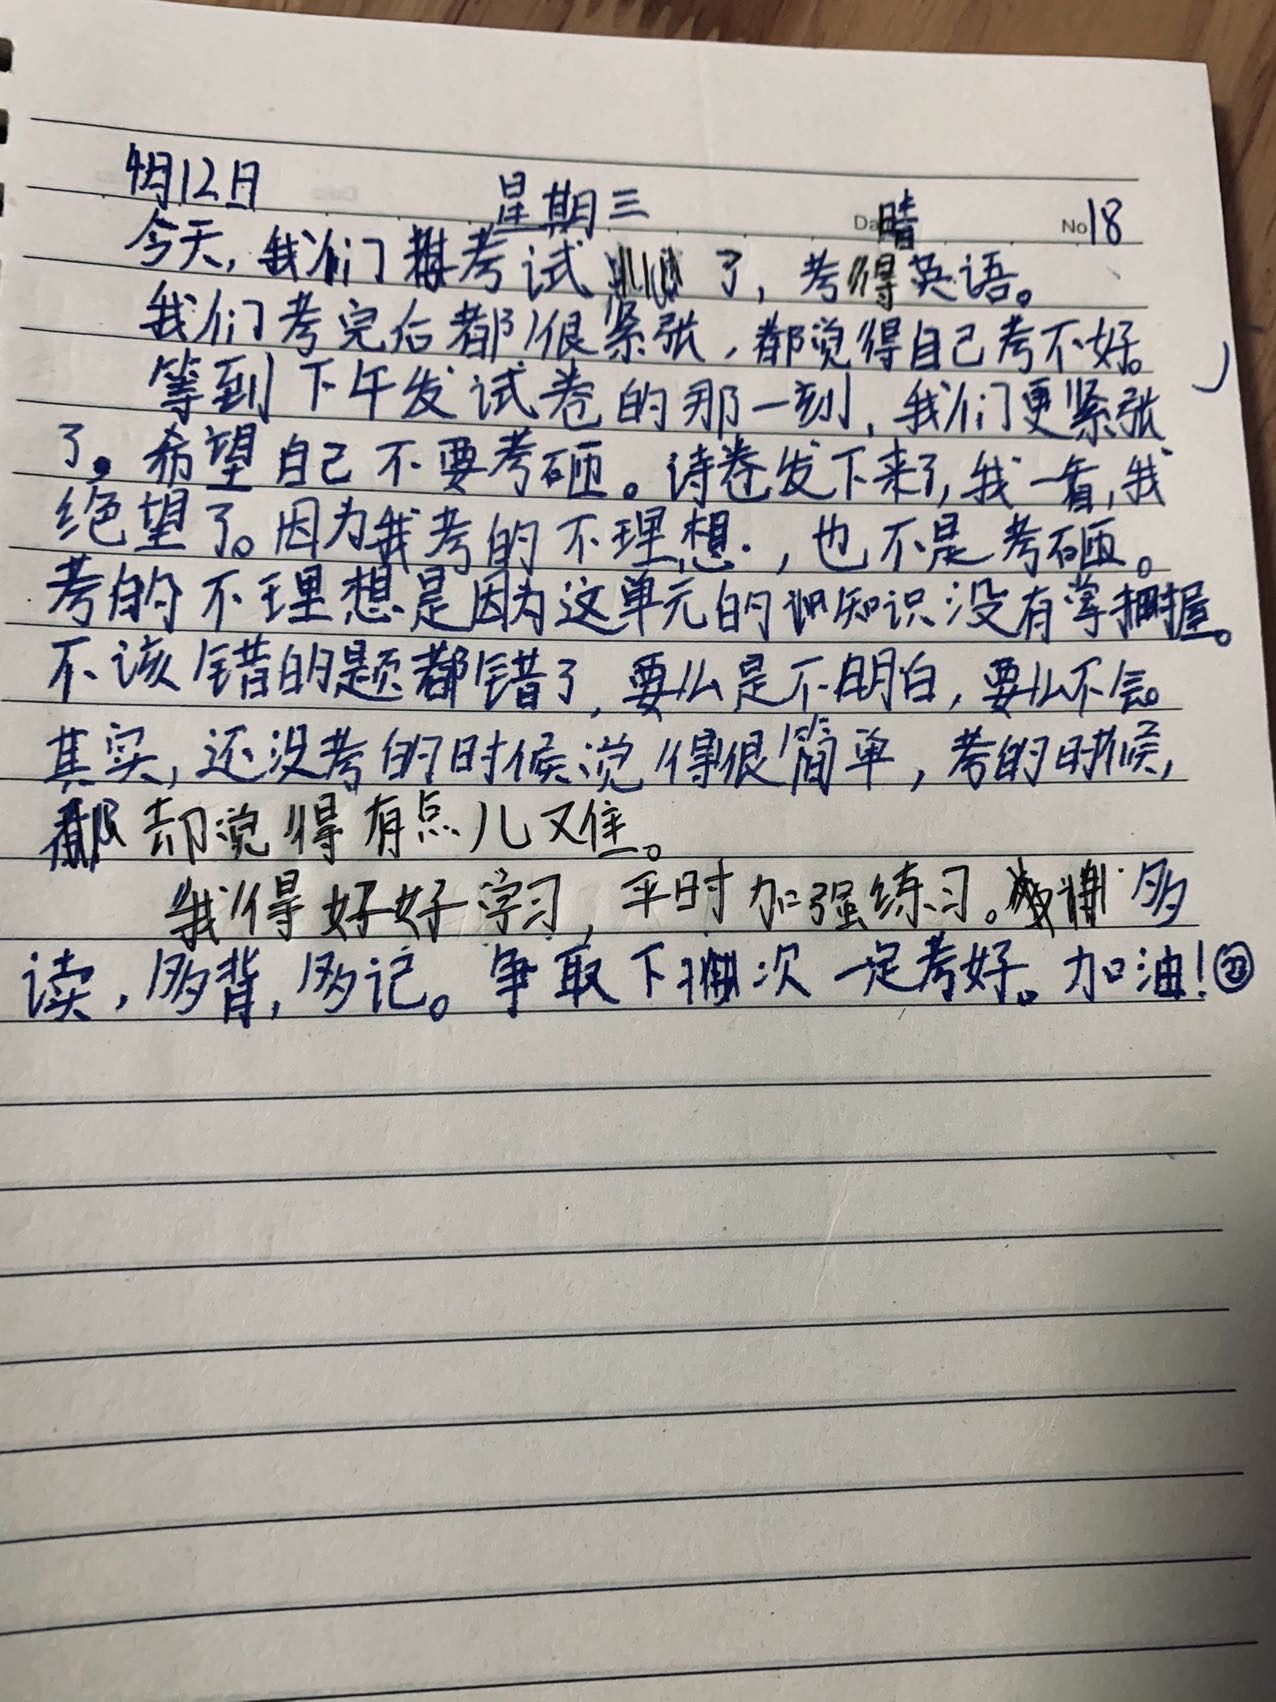 4月12日 星期三 晴 Da No 18
今天,我们考试了,考得英语。
我们考完后都很紧张,都觉得自己考不好。
等到下午发试卷的那一刻,我们更紧张
了。希望自己不要考砸。诗卷发下来了,我一看,我
绝望了。因为我考的不理想.,也不是考砸。
考的不理想是因为这单元的知识没有掌握。
不该错的题都错了,要么是不明白,要么不会。
其实,还没考的时候觉得很简单,考的时候,
却觉得有点儿又难。
我得好好学习,平时加强练习。多
读,多背,多记。争取下次一定考好。加油!